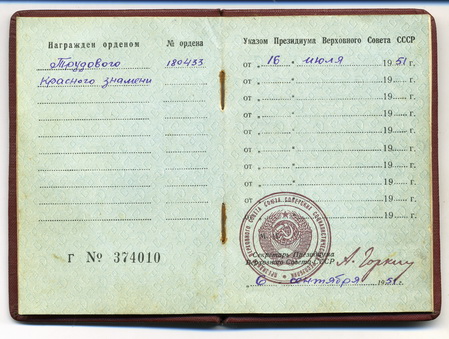 Награжден орденом
№ ордена
Трудового 180433
Красного знамени
г № 374010
Указом Президиума Верховного Совета СССР
от „ 16 " июля 1951 г.
от „ " 19 г.
от „ " 19 г.
от „ " 19 г.
от „ " 19 г.
от „ " 19 г.
от „ " 19 г.
от „ " 19 г.
от „ " 19 г.
от „ " 19
Секретарь Президиума
Верховного Совета СССР
А. Горкин
6 сентября 1951 г.